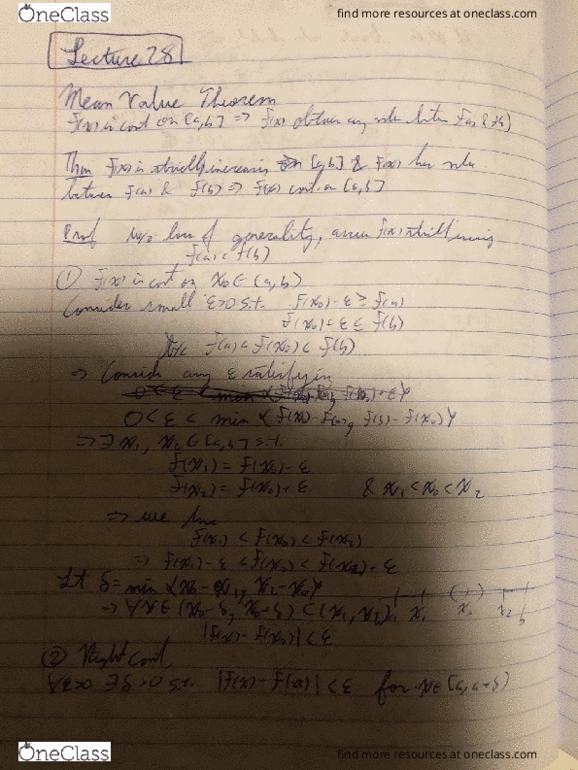 OneClass
find more resources at oneclass.com
Lecture 28
Mean Value Theorem
f(x) is cont on [a,b] => f(x) obtain any value between f(a) & f(b)
Thm f(x) is strictly increasing on [a,b] & f(x) has value
between f(a) & f(b) => f(x) cont on [a,b]
Proof loss of generality, f(x) strictly
f(a) < f(b)
① f(x) is cont on x₀ ∈ (a,b)
Consider small ε>0 s.t. f(x₀) - ε ≥ f(a)
f(x₀) + ε ≤ f(b)
f(a) < f(x₀) < f(b)
=> Consider any ε satisfying
0 < ε < min { f(x₀) - f(a), f(b) - f(x₀) }
=> ∃ x₁, x₂ ∈ [a,b] s.t.
f(x₁) = f(x₀) - ε
f(x₂) = f(x₀) + ε & x₁ < x₀ < x₂
=> we have
f(x₁) < f(x₀) < f(x₂)
=> f(x₁) - ε < f(x₀) < f(x₂) + ε
Let δ = min { x₀ - x₁, x₂ - x₀ }
=> ∀x ∈ (x₀ - δ, x₀ - δ) ⊂ (x₁, x₂) a x₁ x₀ x₂ b
|f(x) - f(x₀)| < ε
② Right cont
∀ε>0 ∃δ>0 s.t. |f(x) - f(a)| < ε for x ∈ [a, a+δ)
OneClass
find more resources at oneclass.com